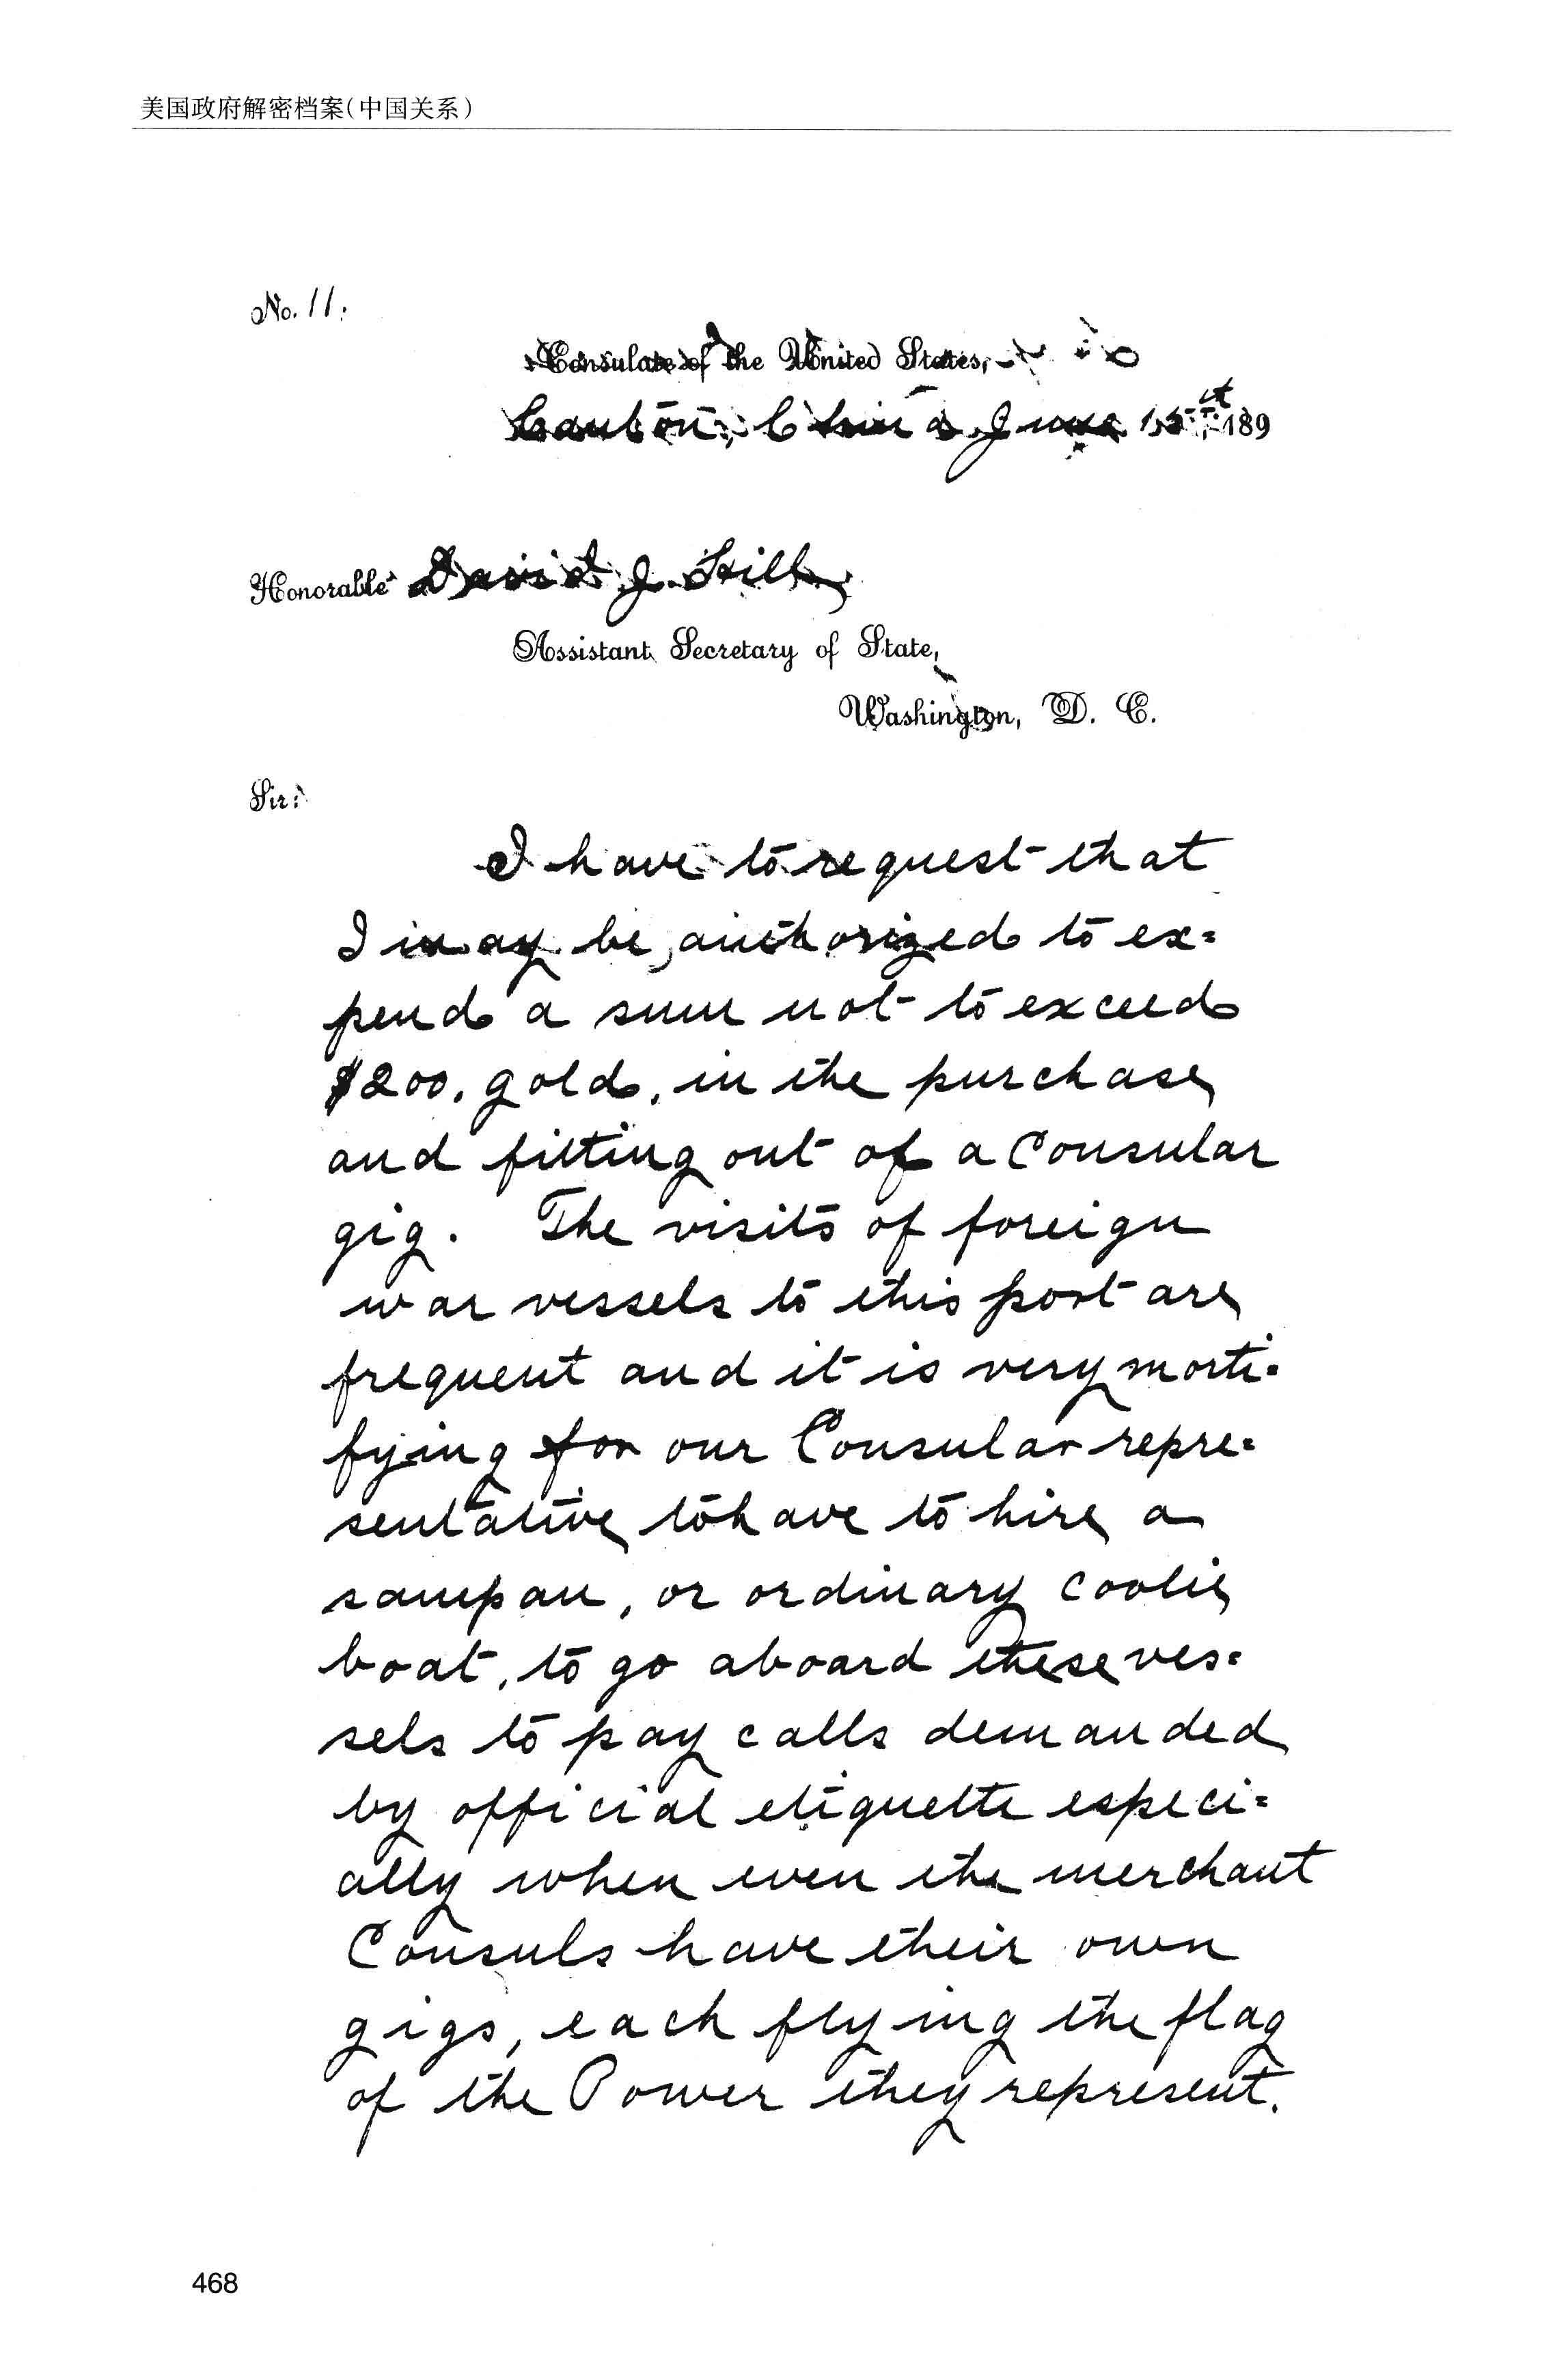 美国政府解密档案(中国关系)
No. 11.
Consulate of the United States,
Canton, China, June 15th, 189
Honorable David J. Hill,
Assistant Secretary of State,
Washington, D. C.
Sir:
I have to request that
I may be, authorized to ex=
pend a sum not to exceed
$200. gold, in the purchase
and fitting out of a Consular
gig. The visits of foreign
war vessels to this port are
frequent and it is very morti=
fying for our Consular repre=
sentative to have to hire a
sampan, or ordinary coolie
boat, to go aboard these ves=
sels to pay calls demanded
by official etiquette especi=
ally when even the merchant
Consuls have their own
gigs, each flying the flag
of the Power they represent.
468